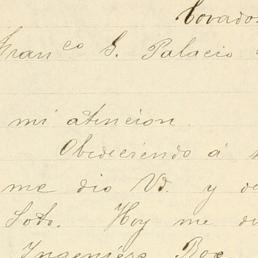 Covados
Franco G. Palacio
mi atencion.
Obedeciendo á
me dio Vd. y de
Soto. Hoy me di
Ingeniero Roe